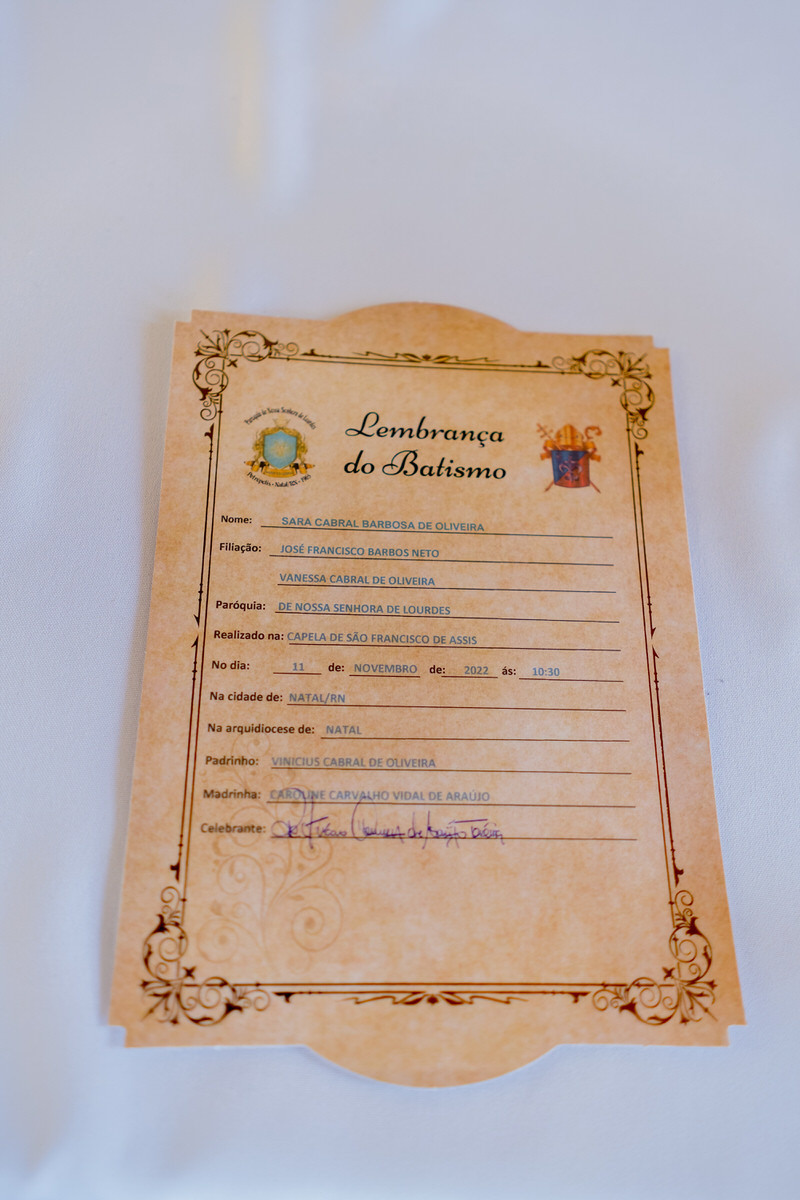 Paróquia de Nossa Senhora de Lourdes
Lembrança
do Batismo
Petrópolis - Natal/RN -
Nome: SARA CABRAL BARBOSA DE OLIVEIRA
Filiação: JOSÉ FRANCISCO BARBOS NETO
VANESSA CABRAL DE OLIVEIRA
Paróquia: DE NOSSA SENHORA DE LOURDES
Realizado na: CAPELA DE SÃO FRANCISCO DE ASSIS
No dia: 11 de: NOVEMBRO de: 2022 ás: 10:30
Na cidade de: NATAL/RN
Na arquidiocese de: NATAL
Padrinho: VINICIUS CABRAL DE OLIVEIRA
Madrinha: CAROLINE CARVALHO VIDAL DE ARAÚJO
Celebrante: